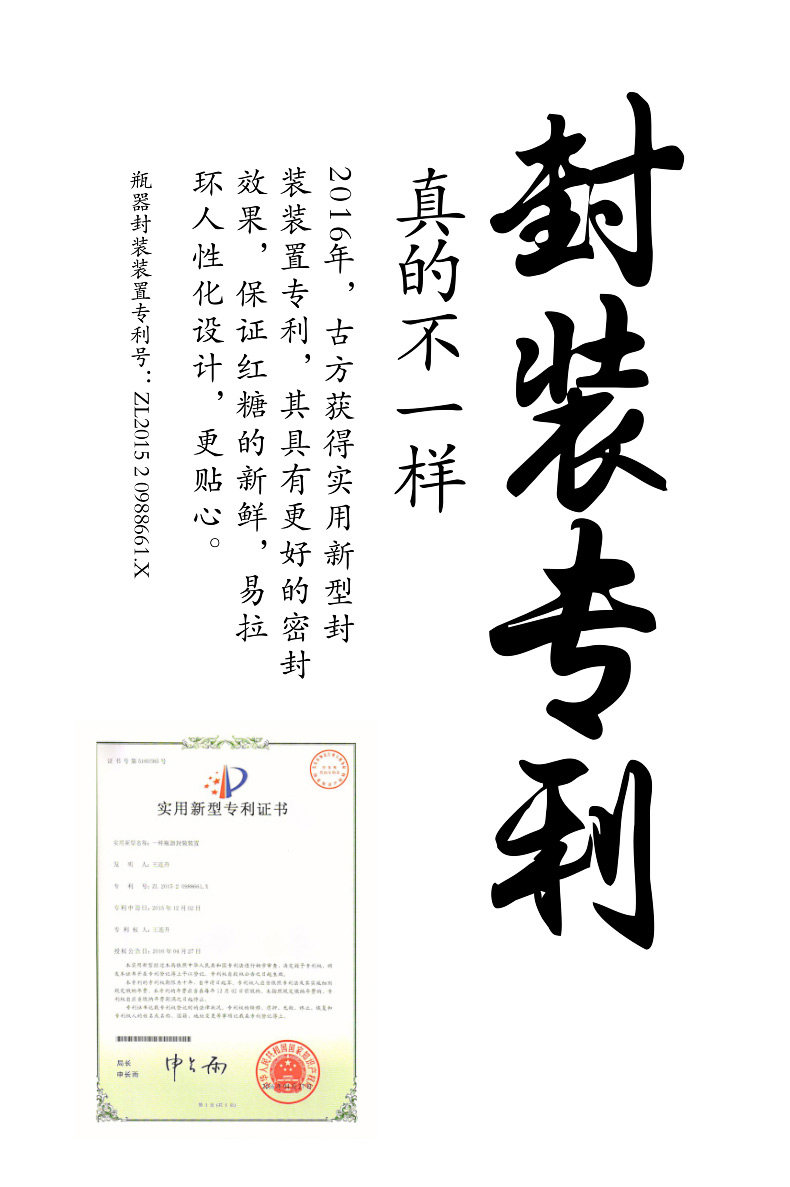 封装专利
真的不一样
2016年，古方获得实用新型封
装装置专利，其具有更好的密封
效果，保证红糖的新鲜，易拉
环人性化设计，更贴心。
瓶器封装装置专利号：ZL2015 2 0988661.X
实用新型专利证书
实用新型名称：一种瓶器封装装置
发 明 人：王连升
专 利 号：ZL 2015 2 0988661.X
专利申请日：2015年12月02日
专 利 权 人：王连升
授权公告日：2016年04月27日
局长
申长雨
第 1 页 (共 1 页)